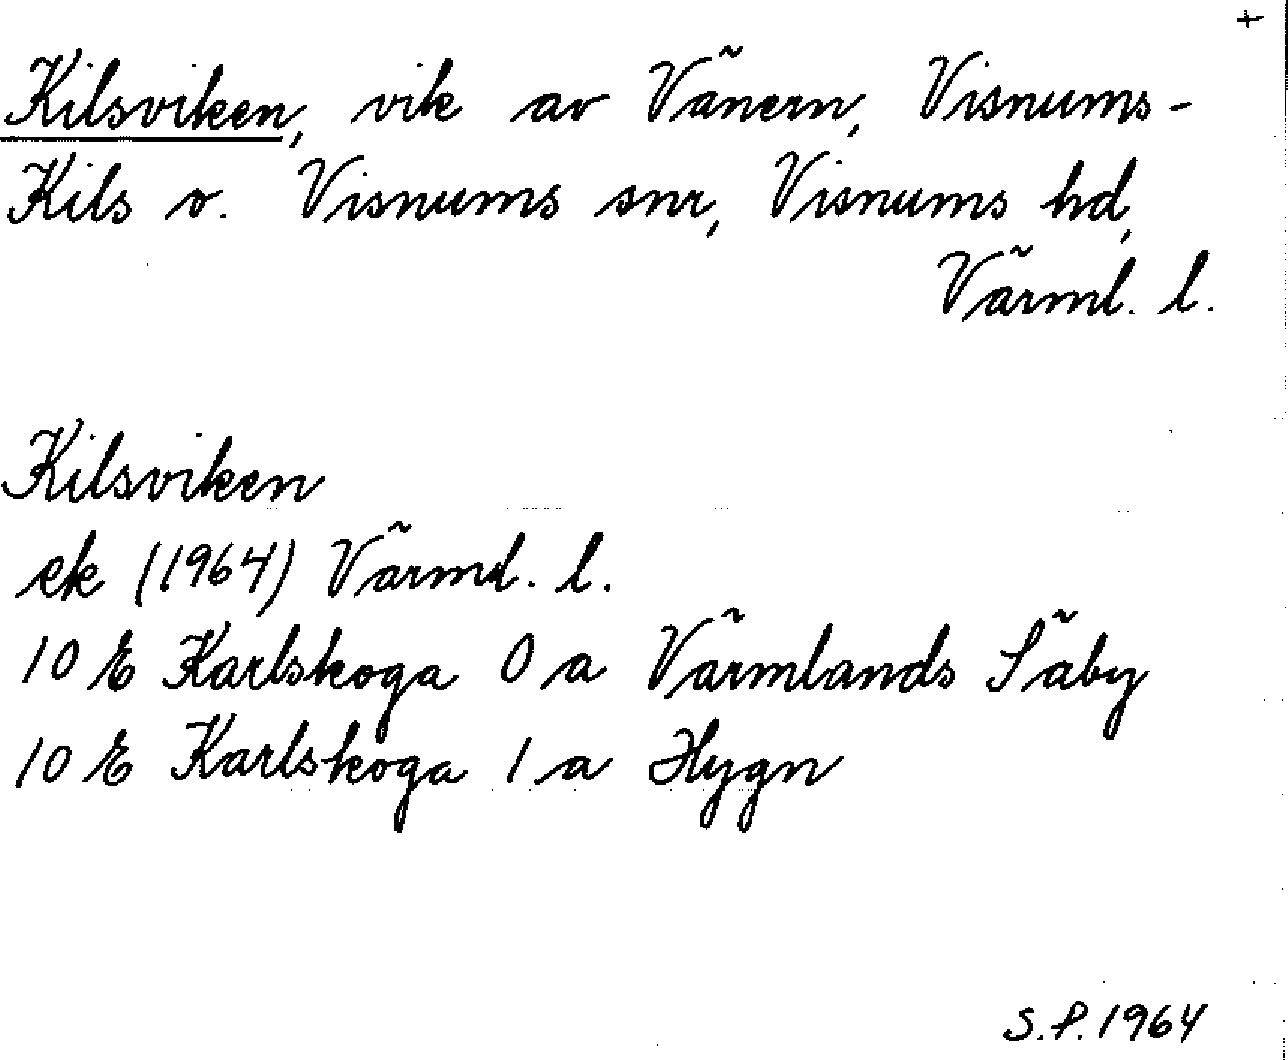 +
Kilsviken, vik av Vänern, Visnums-
Kils o. Visnums snr, Visnums hd,
Värml. l.
Kilsviken
ek (1964) Värml. l.
10 E Karlskoga 0 a Värmlands Säby
10 E Karlskoga 1 a Hygn
S.P. 1964